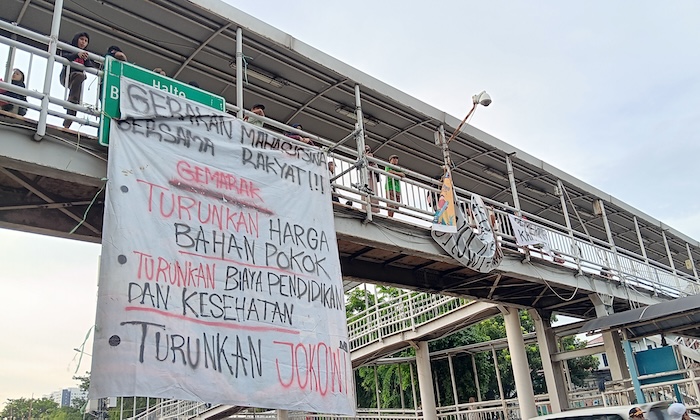 Halte
B
GERAKAN MAHASISWA
BERSAMA RAKYAT!!!
GEMARAK
TURUNKAN HARGA
BAHAN POKOK
TURUNKAN BIAYA PENDIDIKAN
DAN KESEHATAN
TURUNKAN JOKOWI